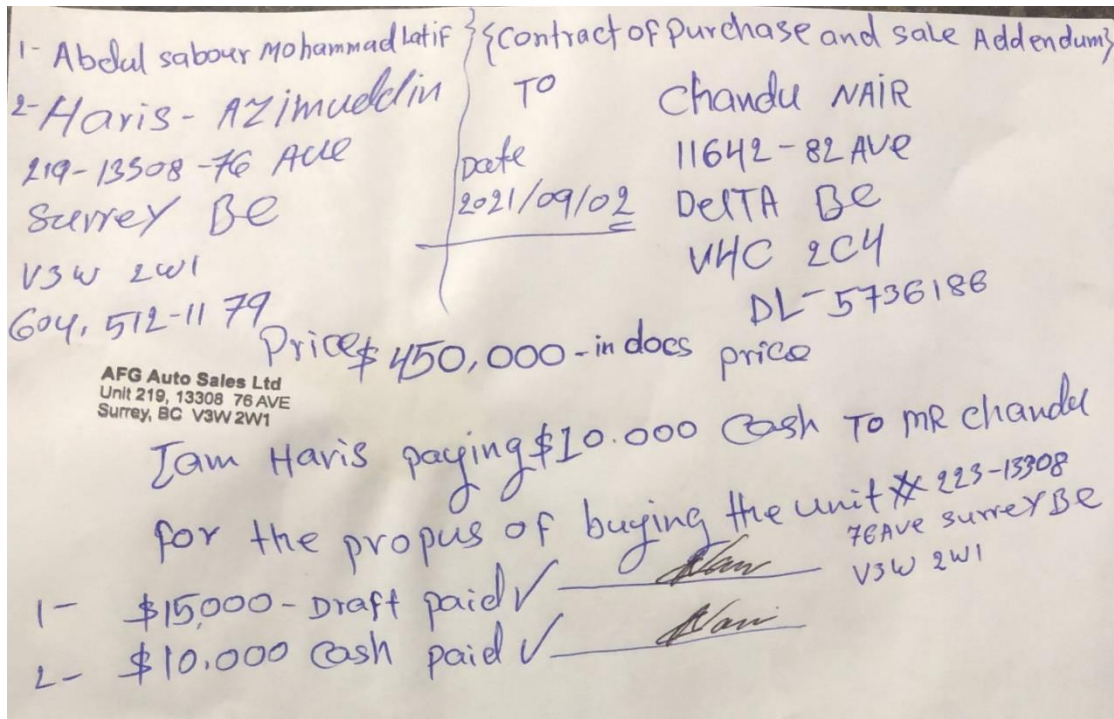 1- Abdul sabour Mohammad Latif
2- Haris - AZimuddin
219-13508-76 AUE
Surrey BC
V3W 2W1
604, 512-11 79
{Contract of Purchase and sale Addendum}
TO
Date
2021/09/02
Chandu NAIR
11642-82 AVe
DelTA BC
V4C 2C4
DL-5736186
Price $ 450,000 - in docs price
AFG Auto Sales Ltd
Unit 219, 13308 76 AVE
Surrey, BC V3W 2W1
I am Haris paying $10.000 Cash To MR chandu
for the propus of buying the unit # 223-13308
76 AVe surrey BC
V3W 2W1
1- $15,000 - Draft paid ✓
2- $10.000 Cash paid ✓